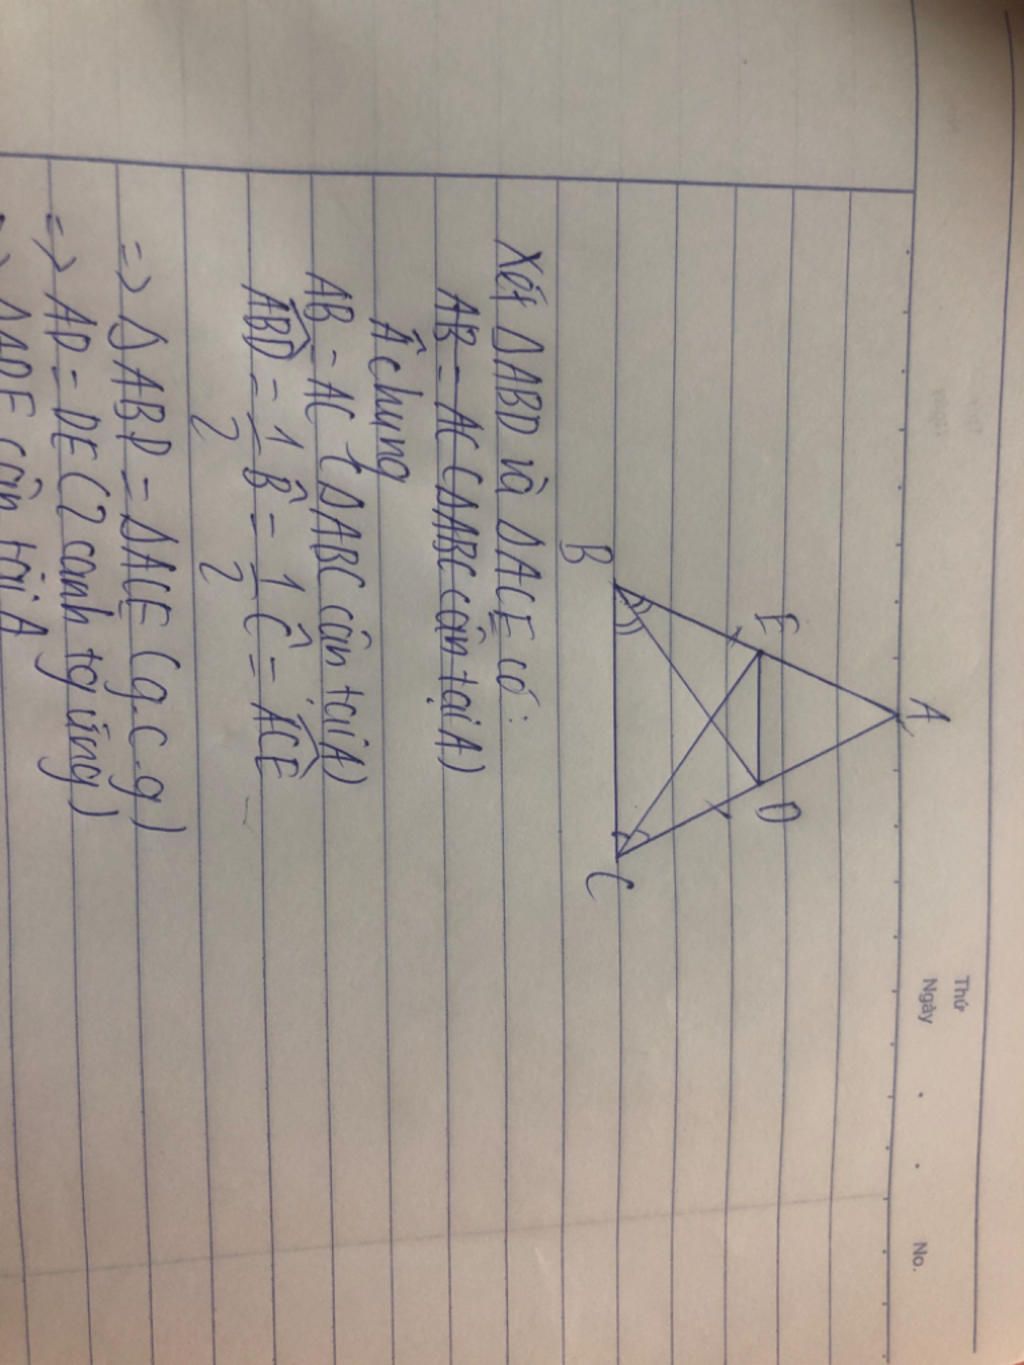 Thứ
Ngày
No.
A
E
D
B
C
Xét ΔABD và ΔACE có:
AB = AC (ΔABC cân tại A)
Â chung
AB = AC (ΔABC cân tại A)
ABD = 1/2 B̂ = 1/2 Ĉ = ACE
=> ΔABD = ΔACE (g.c.g)
=> AD = DE (2 cạnh tg ứng)
=> ΔADE cân tại A